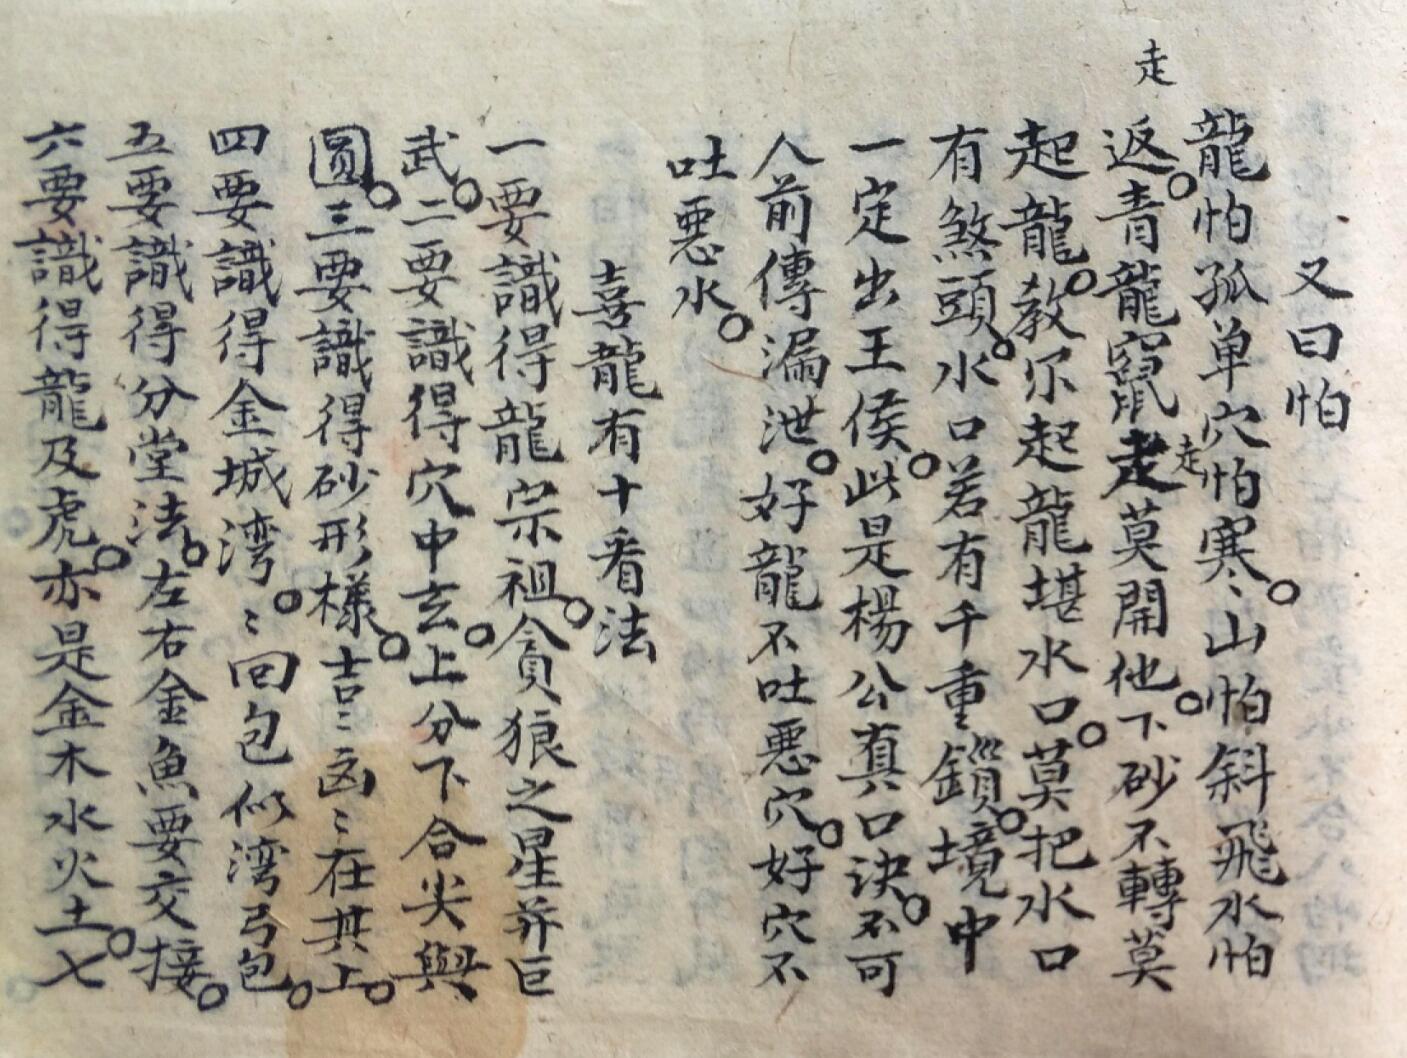 又曰怕
龍怕孤单穴怕寒。山怕斜飛水怕
走
返。青龍竄走走莫開他。下砂不轉莫
起龍。教尔起龍堪水口。莫把水口
有煞頭。水口若有千重鎖。境中
一定出王侯。此是楊公真口诀。不可
人前傳漏泄。好龍不吐悪穴。好穴不
吐悪水。
喜龍有十看法
一要識得龍宗祖。貪狼之星并巨
武。二要識得穴中玄。上分下合尖與
圆。三要識得砂形樣。吉〻凶〻在其上。
四要識得金城湾。〻回包似湾弓包。
五要識得分堂法。左右金魚要交接。
六要識得龍及虎。亦是金木水火土。七